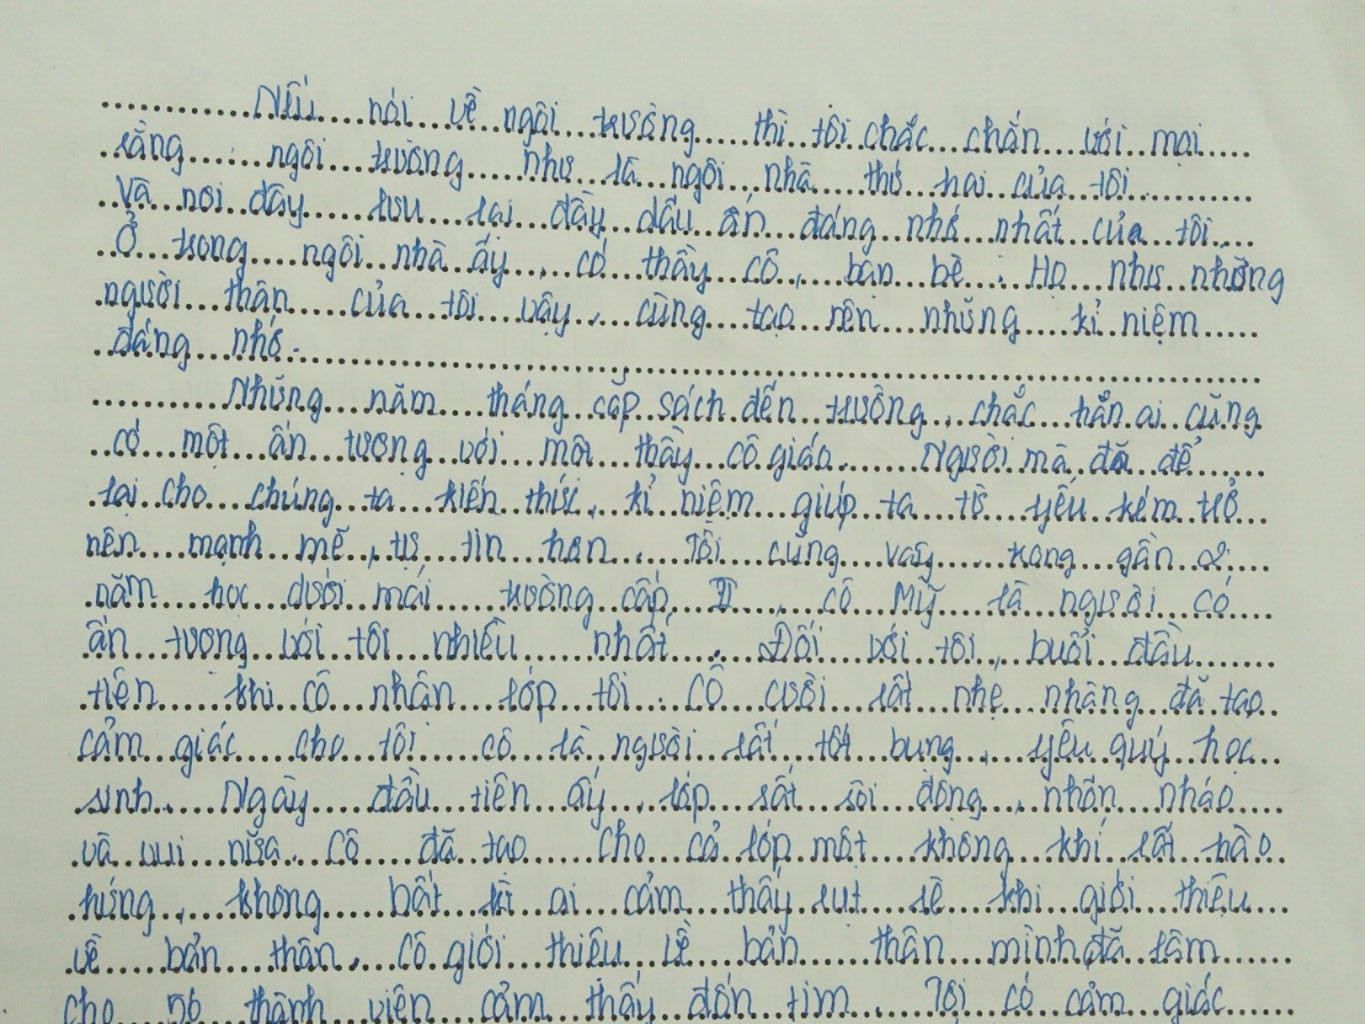 Nếu nói về ngôi trường thì tôi chắc chắn với mọi
rằng ngôi trường như là ngôi nhà thứ hai của tôi.
Và nơi đây lưu lại đầy dấu ấn đáng nhớ nhất của tôi.
Ở trong ngôi nhà ấy, có thầy cô, bạn bè. Họ như những
người thân của tôi vậy, cũng tạo nên những kỉ niệm
đáng nhớ.
Những năm tháng cắp sách đến trường, chắc hẳn ai cũng
có một ấn tượng với một thầy cô giáo. Người mà đã để
lại cho chúng ta kiến thức, kỉ niệm giúp ta từ yếu kém trở
nên mạnh mẽ, tự tin hơn. Tôi cũng vậy, trong gần 2
năm học dưới mái trường cấp II, cô Mỹ là người có
ấn tượng với tôi nhiều nhất. Đối với tôi, buổi đầu
tiên khi cô nhận lớp tôi. Cô cười rất nhẹ nhàng đã tạo
cảm giác cho tôi cô là người rất tốt bụng, yêu quý học
sinh. Ngày đầu tiên ấy, lớp rất sôi động, nhốn nháo
và vui nữa. Cô đã tạo cho cả lớp một không khí rất hào
hứng, không bất kì ai cảm thấy rụt rè khi giới thiệu
về bản thân. Cô giới thiệu về bản thân mình đã làm
cho 56 thành viên cảm thấy đốn tim. Tôi có cảm giác